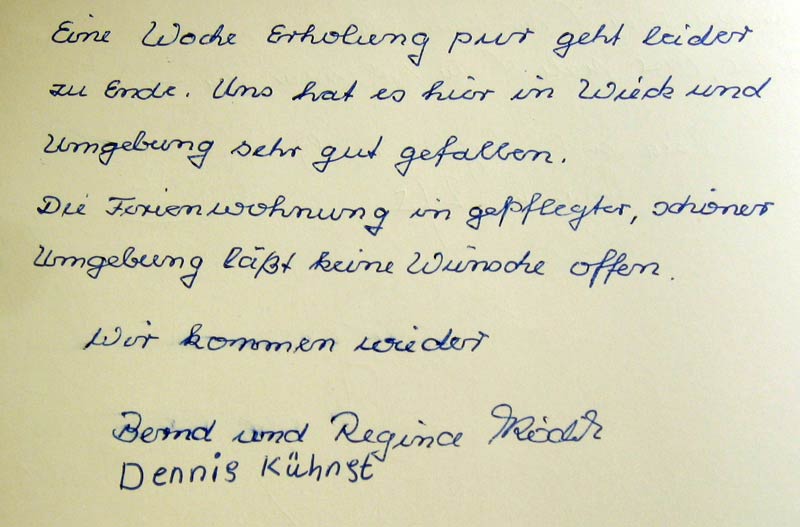 Eine Woche Erholung pur geht leider
zu Ende. Uns hat es hier in Wieck und
Umgebung sehr gut gefallen.
Die Ferienwohnung in gepflegter, schöner
Umgebung läßt keine Wünsche offen.
Wir kommen wieder
Bernd und Regina
Dennis Kühnst